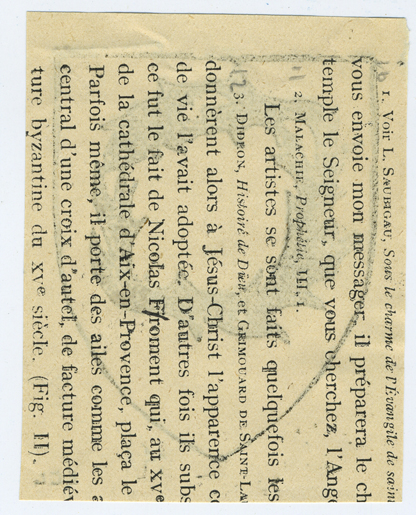 1. Voir L. SAUBIGAU, Sous le charme de l'Évangile de saint
vous envoie mon messager, il préparera le ch
temple le Seigneur, que vous cherchez, l'Ange
2. MALACHIE, Prophétie, III, 1.
Les artistes se sont faits quelquefois les
3. DIDRON, Histoire de Dieu, et GRIMOUARD DE SAINT-LAU
donnèrent alors à Jésus-Christ l'apparence co
de vie l'avait adoptée. D'autres fois ils subs
ce fut le fait de Nicolas Froment qui, au XVe
de la cathédrale d'Aix-en-Provence, plaça le
Parfois même, il porte des ailes comme les a
central d'une croix d'autel, de facture médiév
ture byzantine du XVe siècle. (Fig. II).